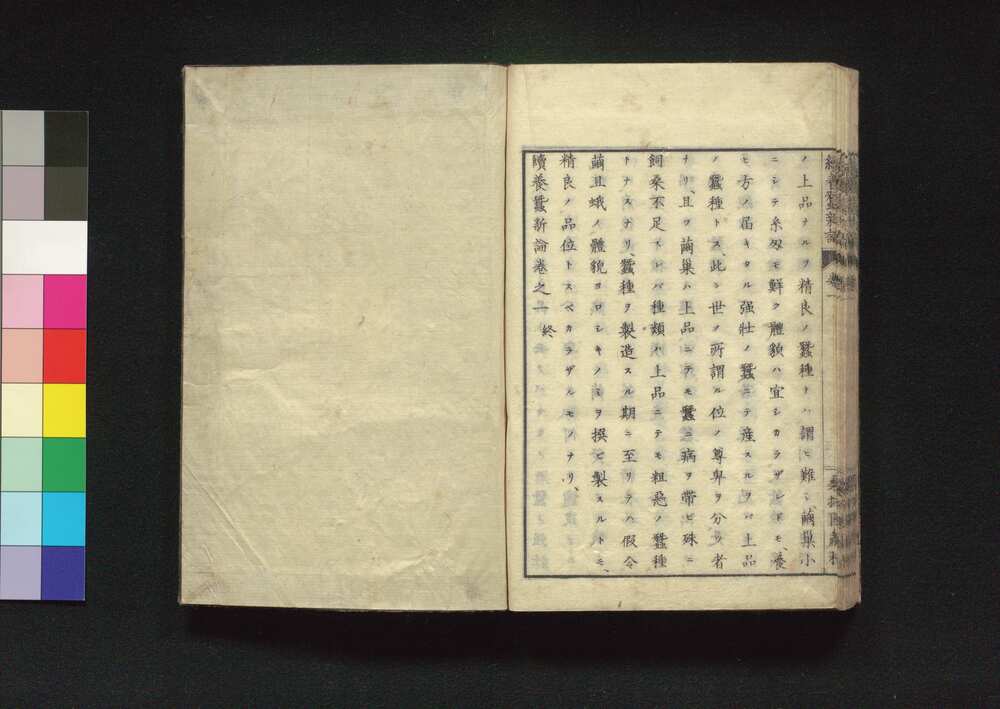 ノ上品ナルヲ精良ノ蠶種トハ謂ヒ難シ、繭巢小
ニシテ糸匁モ鮮ク體貌ハ宜シカラザレドモ、養
ヒ方ノ届キタル强壮ノ蠶ニテ産スルヲバ上品
ノ蠶種トス、此レ世ノ所謂ル位ノ尊卑ヲ分ツ者
ナリ、且ツ繭巢ハ上品ニテモ蠶ニ病ヲ帯ビ殊ニ
飼桑不足スレバ種類ハ上品ニテモ粗惡ノ蠶種
トナスナリ、蠶種ヲ製造スル期ニ至リテハ假令
繭且蛾ノ體貌ヨロシキノミヲ撰ヒ製スルトモ、
精良ノ品位トスベカラザルモノナリ、
續養蠶新論卷之一 終